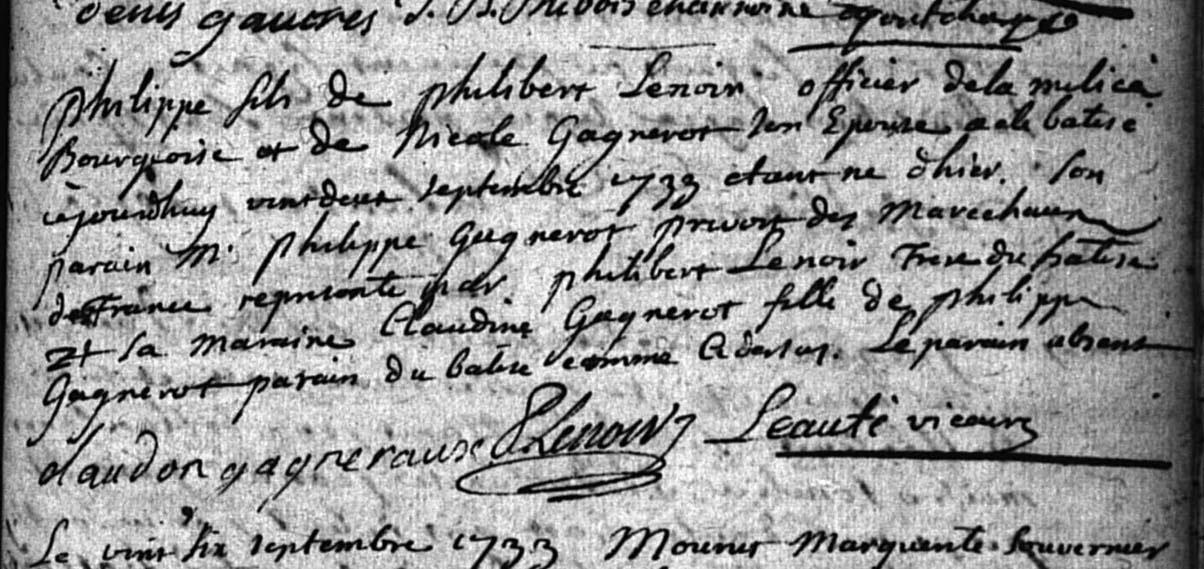 denis gautres J. B. Thibois chanoine
philippe fils de philibert Lenoir officier dela milice
Bourgeoise et de Nicole Gagnerot son Epouse a ete batise
cejourdhuy vint deux septembre 1733 etant ne d'hier. Son
parain Mr. philippe Gagnerot prevost des Marechaux
de France represente par philibert Lenoir Frere du batise
et sa maraine Claudine Gagnerot fille de philippe
Gagnerot parain du batise comme Cy dessus. Le parain absent
claudon gagneraux P Lenoir Leauté vicaire
Le vint six septembre 1733 Mourut Marguerite Souvernier